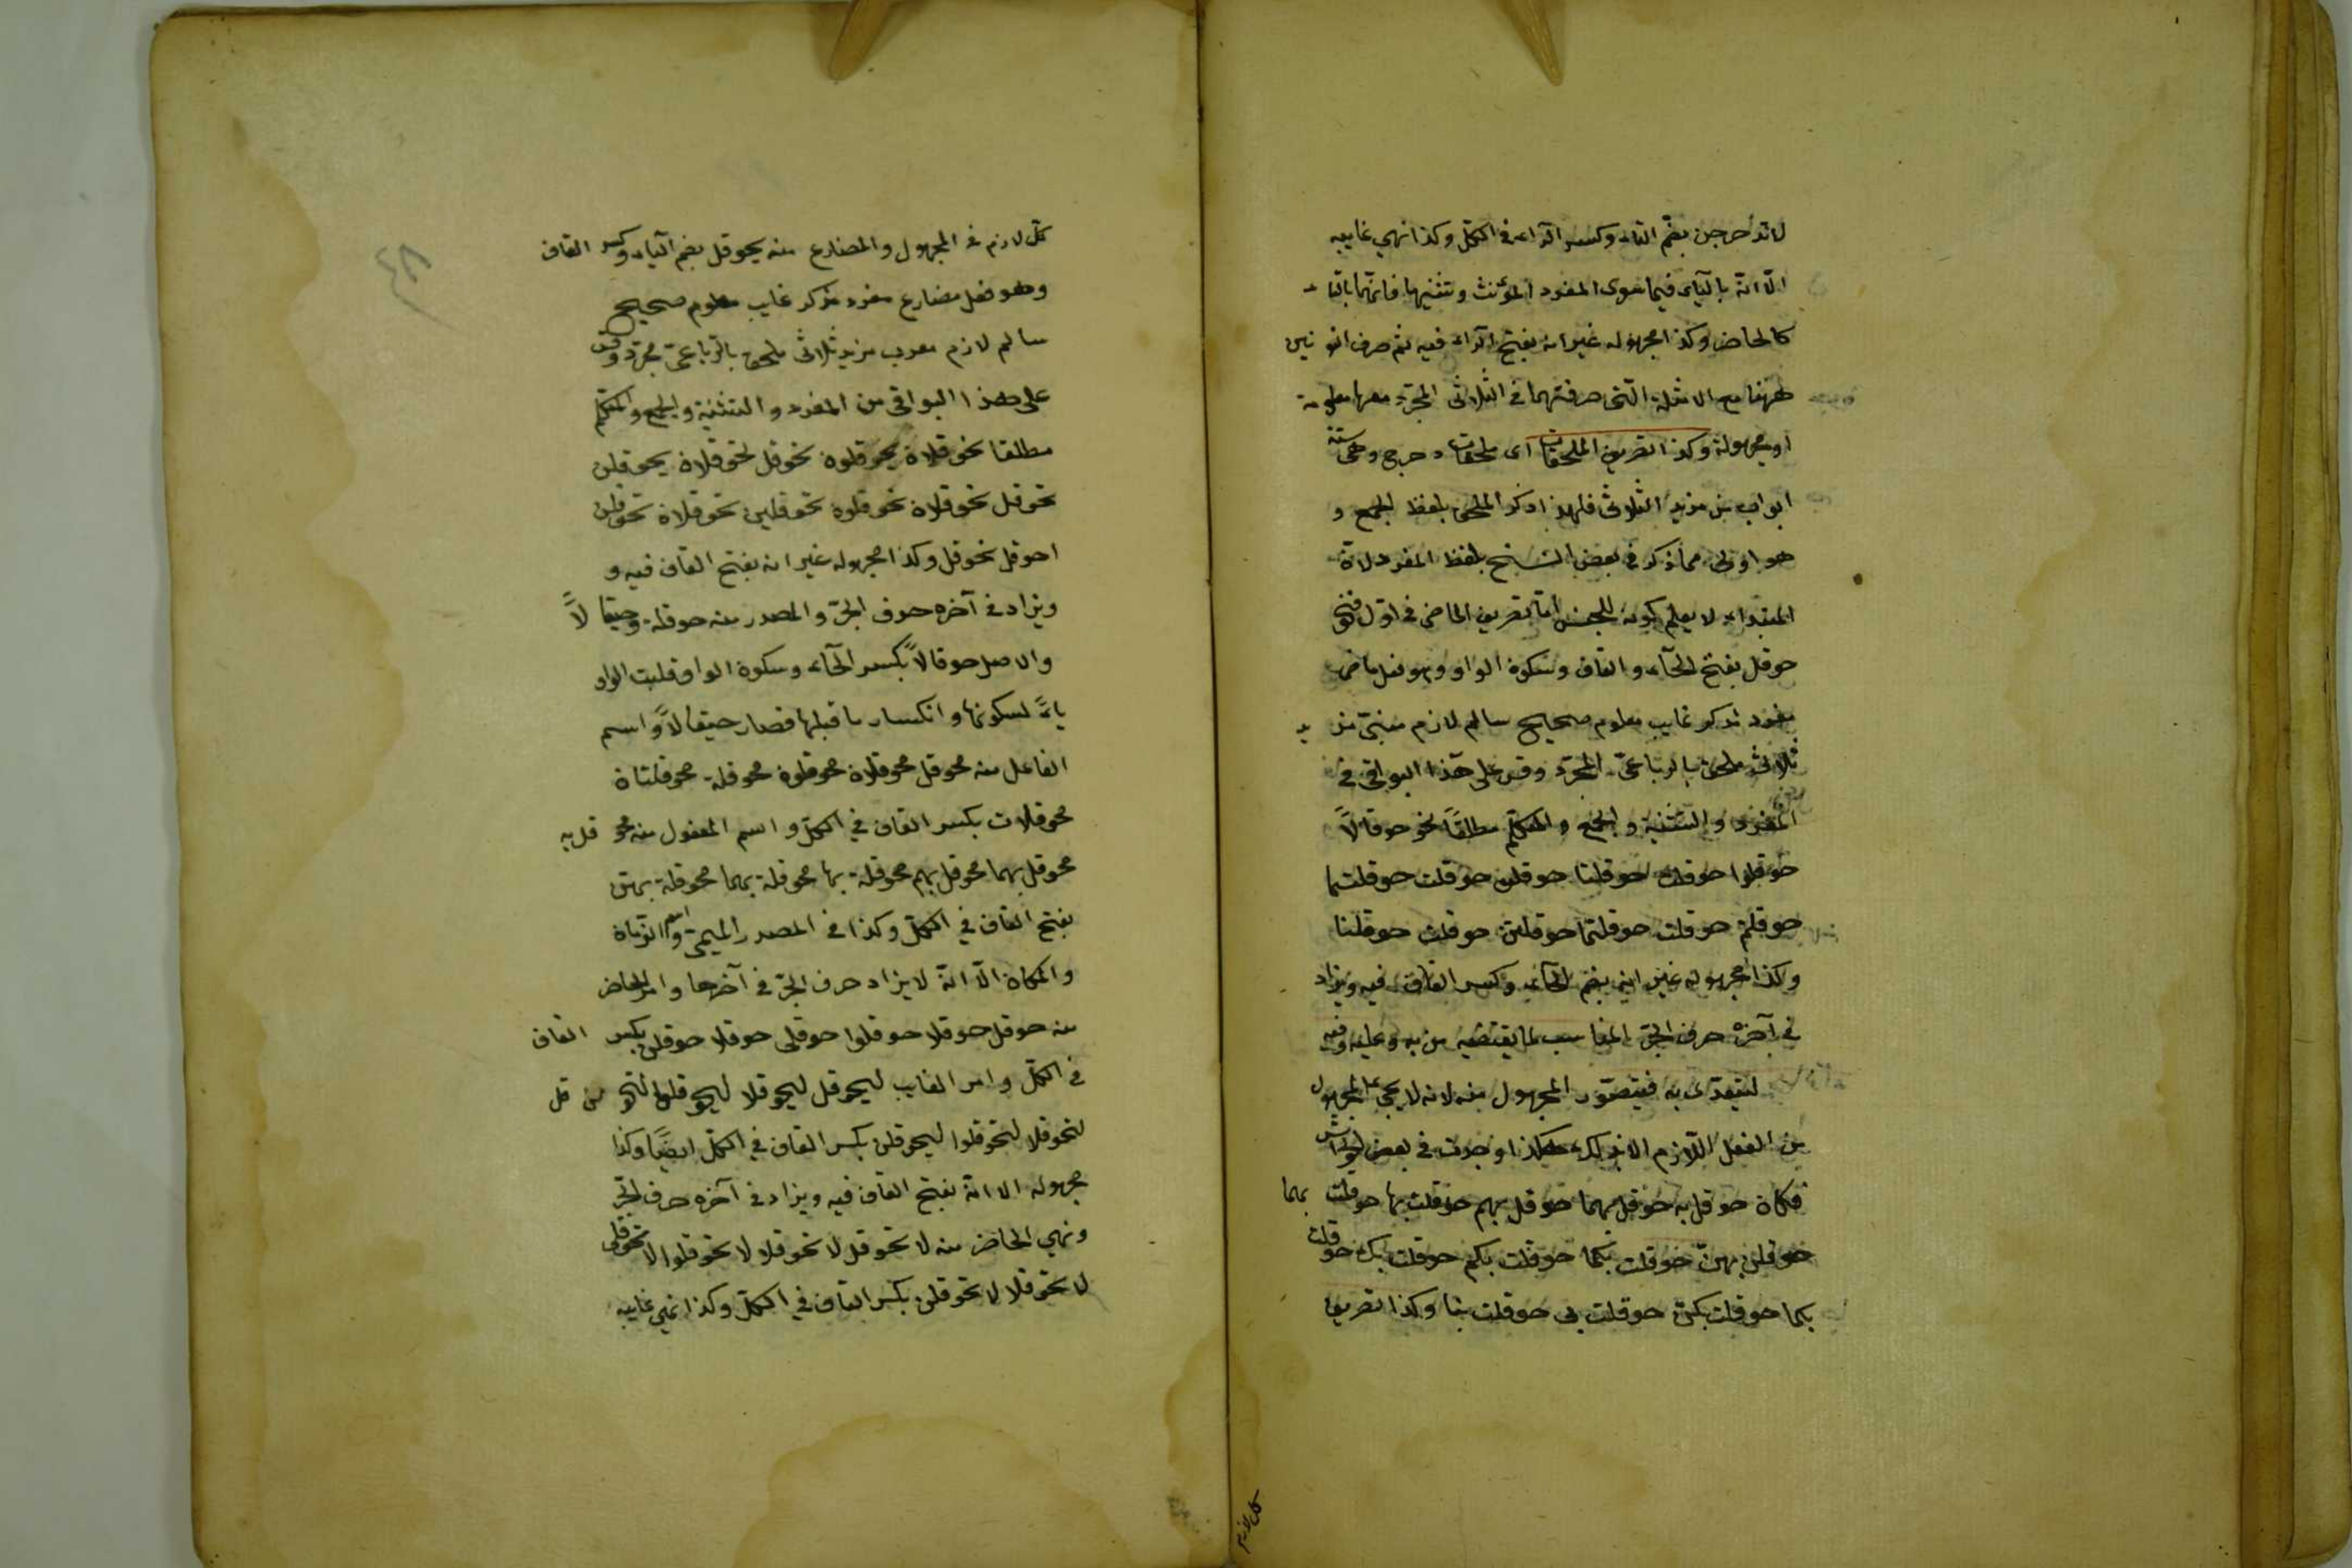 لاتدحرجن بضم التاء وكسر الراء فى الكل وكذا نهى غايبه
الا انه بالياء فيما سوى المفرد المؤنث وتثنيها فانهما بالتاء
كالحاضر وكذا مجهوله غير انه بفتح الراء فيه ثم صرف النونين
ههنا مع الامثلة التى صرفتهما فى الثلاثى المجرد معها معلومة
او مجهولة وكذا تصريف الملحقات اى ملحقات دحرج وهى ستة
ابواب من مزيد الثلاثى فلهذا ذكر الملحق بلفظ الجمع و
هو اولى مما ذكر فى بعض النسخ بلفظ المفرد لانه
المبتداء لا يعلم كونه للجنس اما تصريف الماضى فى اول فنحو
حوقل بفتح الحاء والقاف وسكون الواو وهو فعل ماض
مفرد مذكر غايب معلوم صحيح سالم لازم مبنى مزيد
ثلاثى ملحق بالرباعى المجرد وقس على هذا البواقى فى
المفرد والتثنية والجمع والمتكلم مطلقًا نحو حوقلاً
حوقلوا حوقلت حوقلتا حوقلن حوقلت حوقلتما
حوقلتم حوقلت حوقلتما حوقلتن حوقلت حوقلنا
وكذا مجهوله غير انه بضم الحاء وكسر القاف فيه ويزاد
فى آخره حرف الجر المناسب لما يقتضيه من به وعليه وفيه
ليتعدى به فيتصور المجهول منه لانه لا يجئ المجهول
من الفعل اللازم الا بذلك هكذا وجدت فى بعض الحواش
فكان حوقل به حوقل بهما حوقل بهم حوقلت بها حوقلت بهما
حوقلن بهن حوقلت بكما حوقلت بكم حوقلت بك حوقلت
بكما حوقلت بكن حوقلت بى حوقلت بنا وكذا تصريف
كل لازم
كل لازم فى المجهول والمضارع منه يحوقل بضم الياء وكسر القاف
وهو فعل مضارع مفرد مذكر غايب معلوم صحيح
سالم لازم معرب مزيد ثلاثى ملحق بالرباعى مجرد وقس
على هذا البواقى من المفرد والتثنية والجمع والمتكلم
مطلقا نحو يحوقلان يحوقلون تحوقل تحوقلان يحوقلن
تحوقل تحوقلان تحوقلون تحوقلين تحوقلان تحوقلن
احوقل نحوقل وكذا مجهوله غير انه بفتح القاف فيه و
ويزاد فى آخره حرف الجر والمصدر منه حوقلة وحيقالاً
والاصل حوقالاً بكسر الحاء وسكون الواو قلبت الواو
ياءً لسكونها وانكسار ما قبلها فصار حيقالاً واسم
الفاعل منه محوقل محوقلان محوقلون محوقلة محوقلتان
محوقلات بكسر القاف فى الكل واسم المفعول منه محوقل به
محوقل بهما محوقل بهم محوقلة بها محوقلة بهما محوقلة بهن
بفتح القاف فى الكل وكذا فى المصدر الميمى واسم الزمان
والمكان الا انه لا يزاد حرف الجر فى آخرها وامر الحاضر
منه حوقل حوقلا حوقلوا حوقلى حوقلا حوقلن بكسر القاف
فى الكل وامر الغايب ليحوقل ليحوقلا ليحوقلوا لتحوقل
لتحوقلا لتحوقلوا ليحوقلن بكسر القاف فى الكل ايضًا وكذا
مجهوله الا انه بفتح القاف فيه ويزاد فى آخره حرف الجر
ونهى الحاضر منه لا تحوقل لا تحوقلا لا تحوقلوا لا تحوقلى
لا تحوقلا لا تحوقلن بكسر القاف فى الكل وكذا نهى غايبه